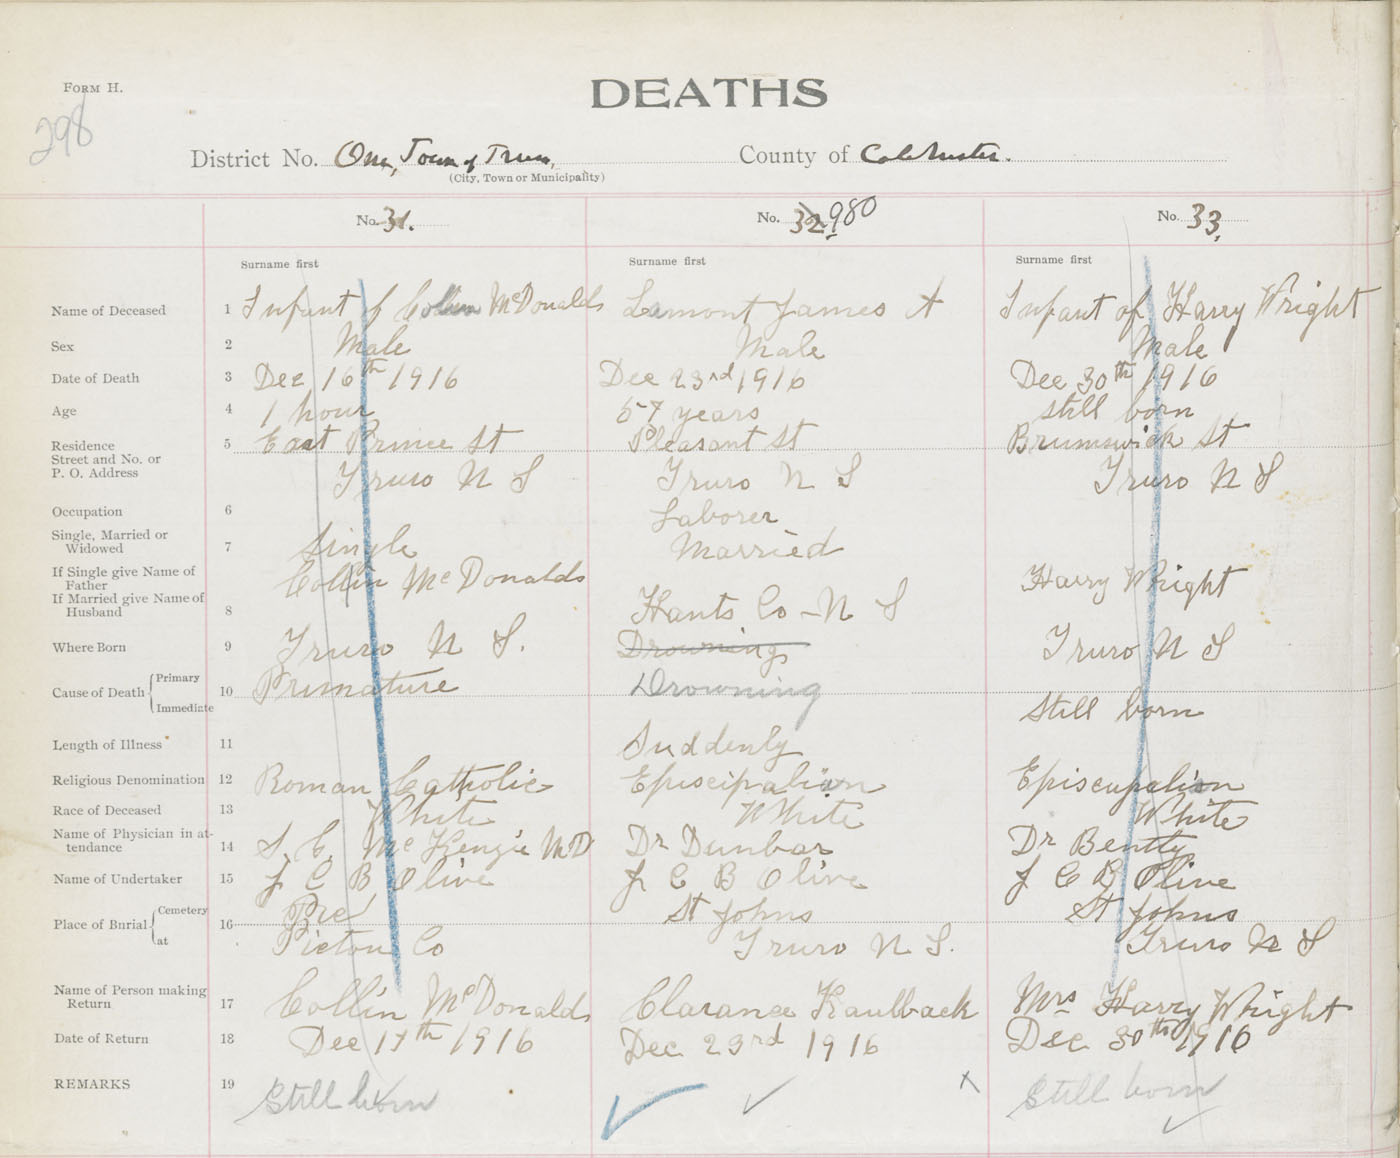 FORM H.
DEATHS
298
District No. One, Town of Truro, County of Colchester.
(City, Town or Municipality)
No. 31. No. 32 980 No. 33.
Surname first Surname first Surname first
Name of Deceased 1 Infant of Collin McDonalds Lamont James A Infant of Harry Wright
Sex 2 Male Male Male
Date of Death 3 Dec 16th 1916 Dec 23rd 1916 Dec 30th 1916
Age 4 1 hour 57 years still born
Residence 5 East Prince St Pleasant St Brumswick St
Street and No. or
P. O. Address Truro N S Truro N S Truro N S
Occupation 6 Laborer
Single, Married or
Widowed 7 Single Married
If Single give Name of
Father Collin McDonalds Harry Wright
If Married give Name of
Husband 8 Hants Co - N S
Where Born 9 Truro N S. Drownings Truro N S
Cause of Death Primary 10 Primature Drowning
Immediate Still born
Length of Illness 11 Suddenly
Religious Denomination 12 Roman Catholic Episcipalian Episcupalian
Race of Deceased 13 White White White
Name of Physician in at-
tendance 14 S. C. McKengie MD Dr Dunbar Dr Bently
Name of Undertaker 15 J C B Olive J C B Olive J C B Olive
Place of Burial Cemetery 16 St Johns St Johns
at Pictou Co Truro N S. Truro N S
Name of Person making
Return 17 Collin McDonalds Clarance Kaulback Mrs Harry Wright
Date of Return 18 Dec 17th 1916 Dec 23rd 1916 Dec 30th 1916
REMARKS 19 Still born Still born